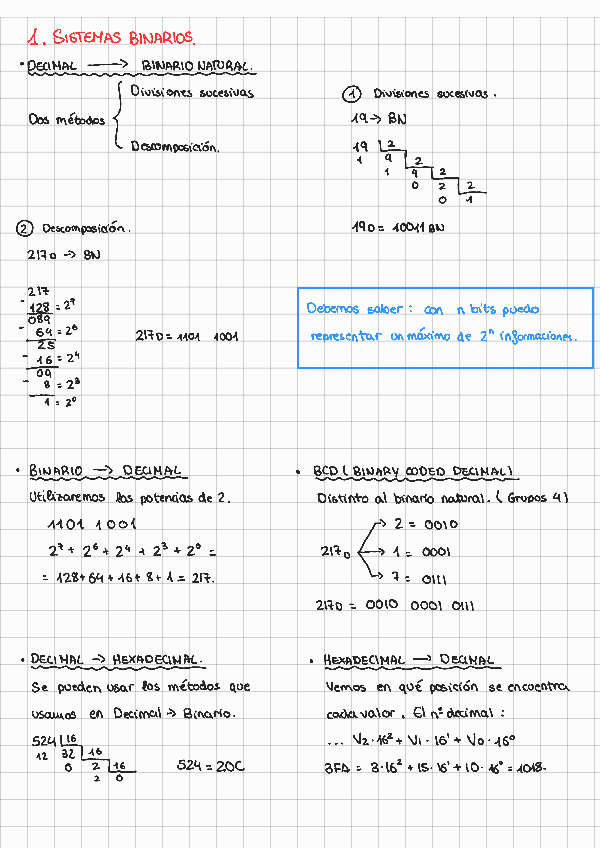 1. SISTEMAS BINARIOS.
• DECIMAL → BINARIO NATURAL.
Dos métodos
Divisiones sucesivas
Descomposición.
① Divisiones sucesivas.
19 → BN
19 2
1 9 2
1 4 2
0 2 2
0 1
19D = 10011 BN
② Descomposición.
217D → BN
217
- 128 = 2⁷
089
- 64 = 2⁶
25
- 16 = 2⁴
09
- 8 = 2³
1 = 2⁰
217D = 1101 1001
Debemos saber: con n bits puedo
representar un máximo de 2ⁿ informaciones.
• BINARIO → DECIMAL
Utilizaremos las potencias de 2.
1101 1001
2⁷ + 2⁶ + 2⁴ + 2³ + 2⁰ =
= 128 + 64 + 16 + 8 + 1 = 217.
• BCD (BINARY CODED DECIMAL)
Distinto al binario natural. (Grupos 4)
217D
2 = 0010
1 = 0001
7 = 0111
217D = 0010 0001 0111
• DECIMAL → HEXADECIMAL.
Se pueden usar los métodos que
usamos en Decimal → Binario.
524 16
12 32 16
0 2 16
2 0
524 = 20C
• HEXADECIMAL → DECIMAL
Vemos en qué posición se encuentra
cada valor. El nº decimal:
... V₂·16² + V₁·16¹ + V₀·16⁰
3FA = 3·16² + 15·16¹ + 10·16⁰ = 1018.